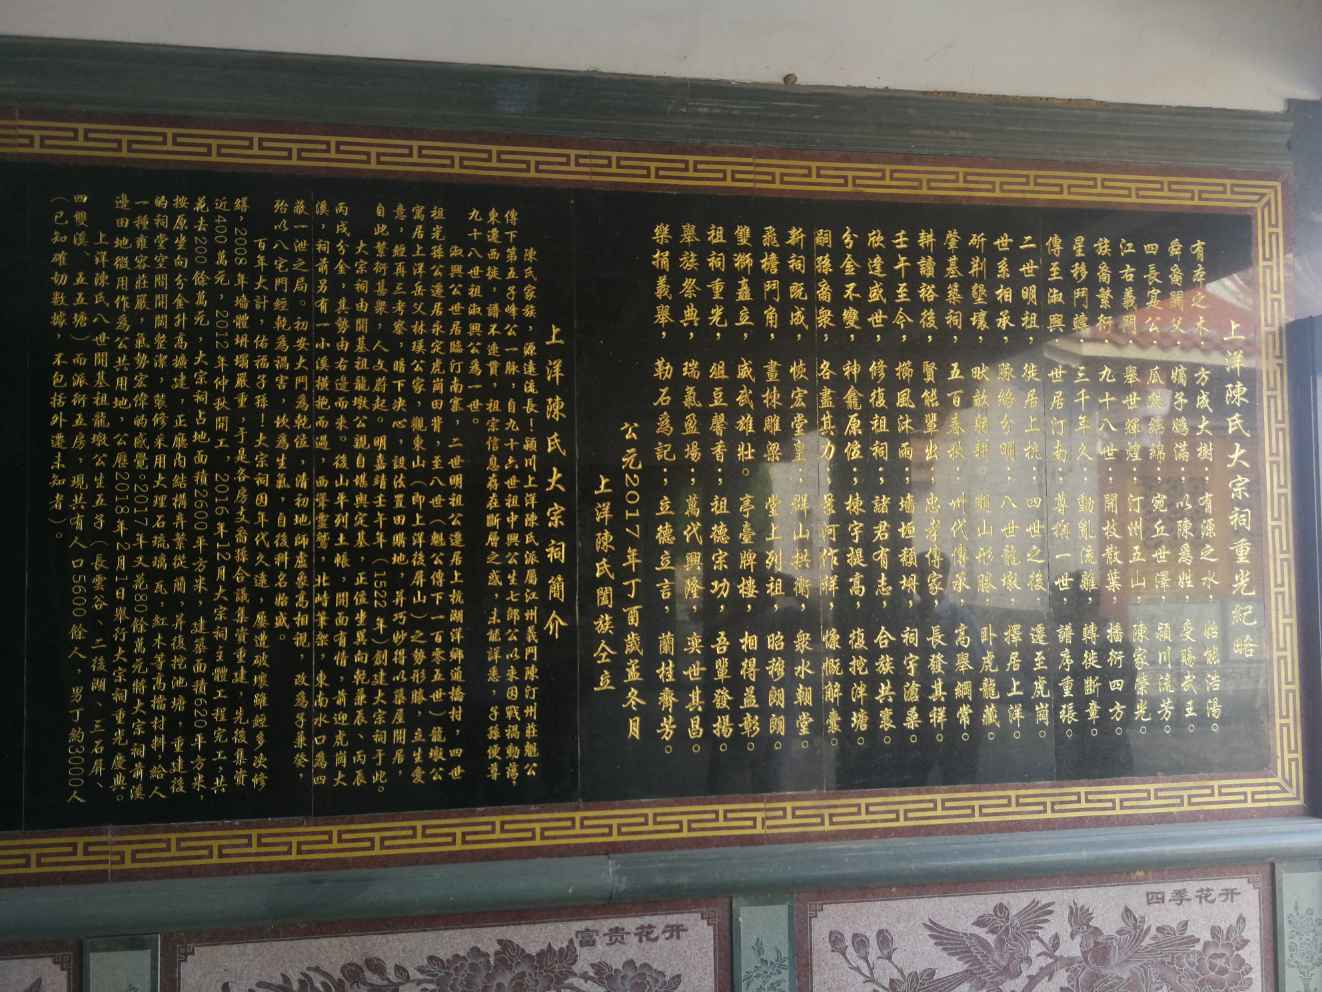 上洋陳氏大宗祠重光紀略
有壺之木，方成大樹；有源之水，始能浩湯。
舜裔閼父，嬀子媯滿；以陳為姓，受賜武王。
四長寔公，瓜瓞綿綿；宛丘世澤，潁川流芳。
江右義門，舉世輝煌；汀州五山，陳家榮光。
族裔繁衍，九十八世；開枝散葉，播衍四方。
星移鬥轉，三千年久；動亂流離，轉徙斷章。
傳至淑興，世居汀南；尊稱一世，譜序重張。
二世明祖，徙居上杭；四世之後，遷至虎崗。
世系相承，脉絡分明；八世龍墩，擇居上洋。
斫荆墾壤，畎畝順耕；觀山形勝，卧虎龍藏。
肇基築祠，五百春秋；卅代傳承，高舉綱常。
耕讀裕後，賢能輩出；忠孝傳家，長發其祥。
壬午至今，櫛風沐雨；墻垣頹坍，祠宇滄桑。
欣逢盛世，修復祖祠；諸君有志，合族共襄。
分金不變，神龕原位；棟宇提高，復挖泮塘。
嗣孫裔衆，各盡其力；眾河作鮮，慷慨解囊。
新祠既成，恢宏堂皇；群山拱衛，衆水朝堂。
飛檐鬥角，畫棟雕梁。堂上列祖，昭穆朗朗。
雙獅矗立，威武雄壯。亭臺牌樓，相得益彰。
祖祠重光，俎豆馨香；祖德宗功，吾輩發揚。
舉族祭典，瑞氣盈場；萬代興隆，奕世其昌。
樂捐義舉，勒石為記；立德立言，蘭桂齊芳。
公元2017年丁酉歲孟冬月
上洋陳氏閤族仝立
上洋陳氏大宗祠簡介
陳氏家族，源遠流長！潁川上洋陳氏派屬江州義門陳汀州莊魁公
傳下第五子峰公一脉，自九十六世祖中興公生七郎公以來因戰禍動蕩，
東遷西徙，譜不連貫，祖宗信息存在斷層之惑，未能詳悉，子孫便尊
九十八世祖淑興公為一世。
淑興公世居臨汀南寨，二世明祖公遷居上杭湖洋鄉通橋村，四世
祖宅孫公遷居永定虎崗田背，至八世（魁公傳下一百零五世）龍墩公
寓居上洋岳父林瑛公家，觀東山（即上洋後屏山）之勢形勝，立生愛
意，經再三考察，暗下决心，設法置田購地，并巧妙得以築屋開居，
自此繁衍甚衆，人文蔚起。明嘉靖壬午年（1522年）創建大宗祠于此。
大宗祠由開基祖龍墩公親自堪輿定基，正位坐巽向乾兼辰、丙辰
丙戌分金，其勢由右邊而來。後山平列土帳，開面有情，前迎虎崗大
溪，祠前另有一小溪橫抱而過，西聳雲鷲，北峙筆架，東南水口為四
蔽一泄之局。初安大門為乾位，清初地師盧喬高相視，改為子兼癸，
殆以八宅門經乾為禍害，坎為生氣，自後科名始盛。
百年大計，佑福子孫！大宗祠因年代久遠，屢遭破壞雖經多次修
繕，2008年墻體坍塌嚴重，于是各房支裔孫合議集資重建，先後集資
近400萬元，2012年仲秋開工，2016年12月大宗祠主體工程完工，共
花去200餘萬元，大宗祠占地面積2600平方米，建築面積620平方米，
按原坐向分金升高擴建，正廳內結構弃繁從簡，并復挖池塘，重建後
的祠堂空間開闊整潔，裝修采用大理石琉璃瓦，紅木等高檔材料，給人
一種雍容莊嚴，氣勢宏偉的感覺。2017年又花80餘萬元將大宗祠前溪
邊田地徵用作為公共用地，公曆2018年2月1日舉行大宗祠重光慶典。
上洋陳氏八世開基祖龍墩公生五子（長雲谷、二後湖、三石屏、
四雙溪、五五塘）而派衍五房，現共有人口5600餘人，男丁約3000人
（已知確切數據，不包括外遷未知者）。
富贵花开
四季花开